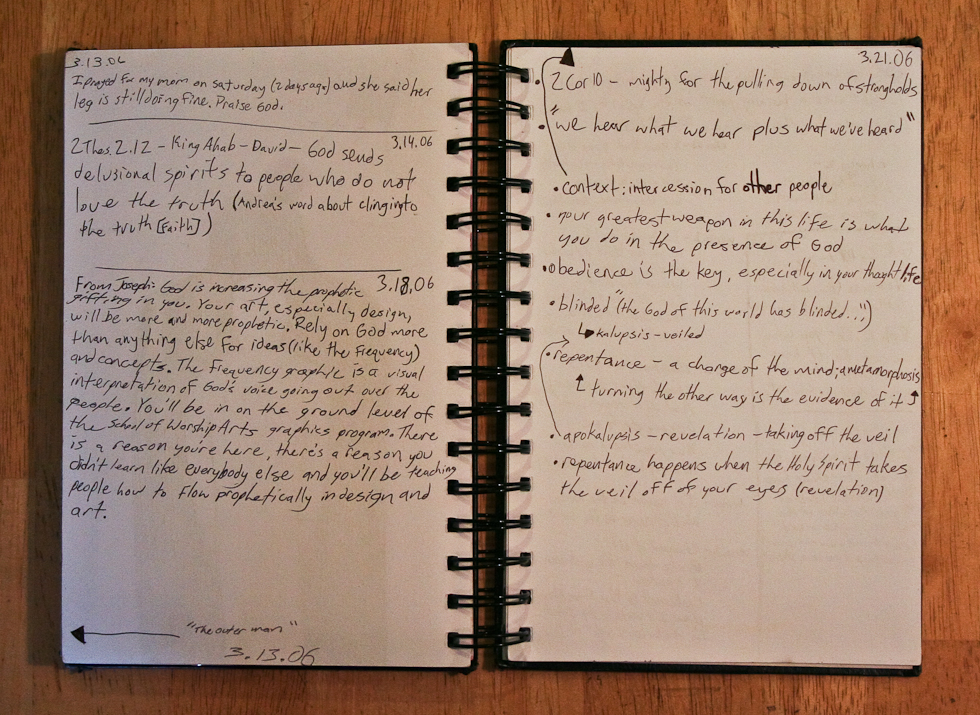 3.13.06
I prayed for my mom on saturday (2 days ago) and she said her
leg is still doing fine. Praise God.
2 Thes. 2.12 - King Ahab - David - God sends 3.14.06
delusional spirits to people who do not
love the truth (Andrea's word about clinging to
the truth [Faith])
From Joseph: God is increasing the prophetic 3.18.06
gifting in you. Your art, especially design,
will be more and more prophetic. Rely on God more
than anything else for ideas (like the Frequency)
and concepts. The Frequency graphic is a visual
interpretation of God's voice going out over the
people. You'll be in on the ground level of
the School of Worship Arts graphics program. There
is a reason you're here, there's a reason you
didn't learn like everybody else and you'll be teaching
people how to flow prophetically in design and
art.
"The outer man"
3.13.06
3.21.06
• 2 Cor 10 - mighty for the pulling down of strongholds
• "we hear what we hear plus what we've heard"
• context: intercession for other people
• your greatest weapon in this life is what
you do in the presence of God
• obedience is the key, especially in your thought life
• blinded "(the God of this world has blinded...")
kalupsis - veiled
• repentance - a change of the mind; a metamorphosis
turning the other way is the evidence of it
• apokalupsis - revelation - taking off the veil
• repentance happens when the Holy Spirit takes
the veil off of your eyes (revelation)